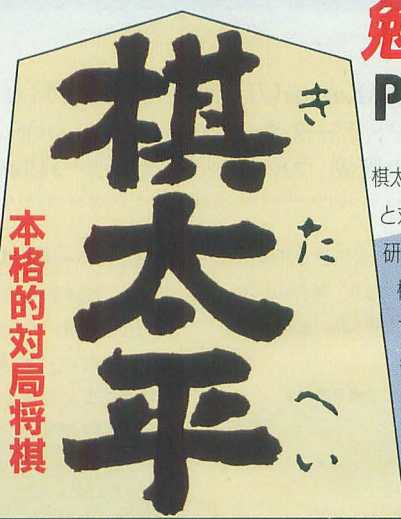 棋太平
きたへい
本格的対局将棋
P
棋太
と対
研